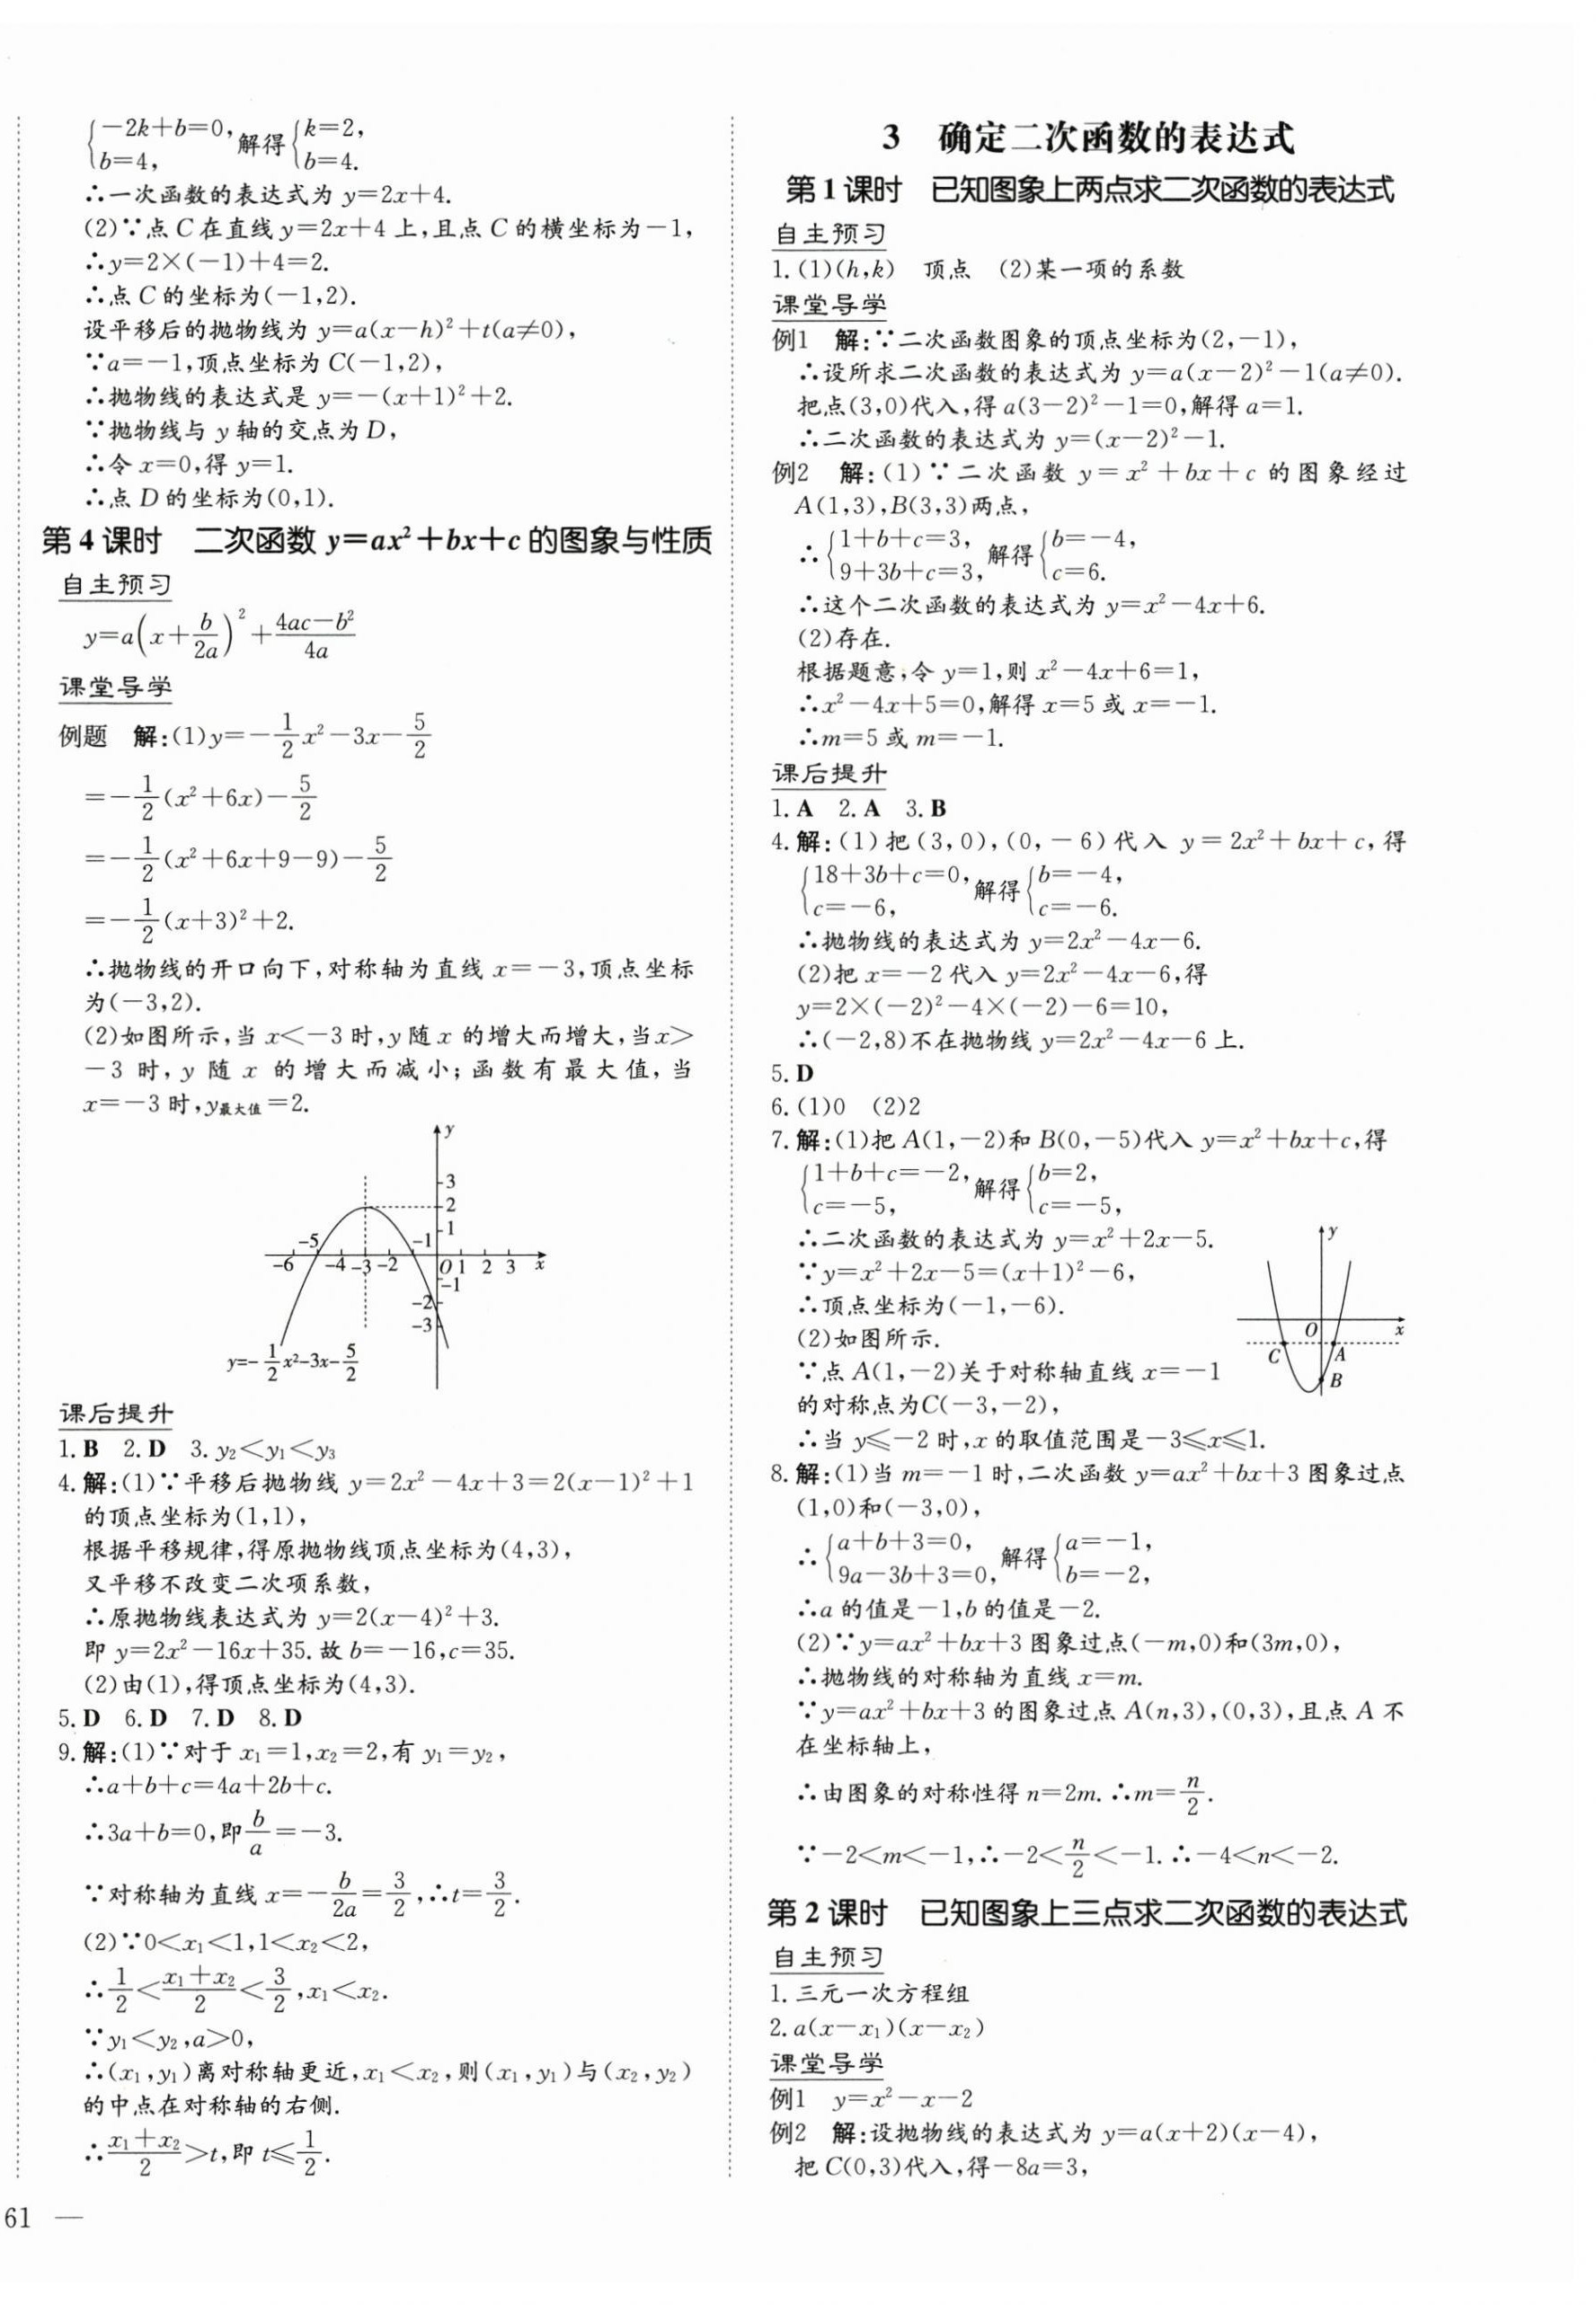 {−2k+b=0, b=4, 解得{k=2, b=4.
∴一次函数的表达式为 y=2x+4.
(2)∵点 C 在直线 y=2x+4 上,且点 C 的横坐标为−1,
∴y=2×(−1)+4=2.
∴点 C 的坐标为(−1,2).
设平移后的抛物线为 y=a(x−h)²+t(a≠0),
∵a=−1,顶点坐标为 C(−1,2),
∴抛物线的表达式是 y=−(x+1)²+2.
∵抛物线与 y 轴的交点为 D,
∴令 x=0,得 y=1.
∴点 D 的坐标为(0,1).
第 4 课时 二次函数 y=ax²+bx+c 的图象与性质
自主预习
y=a(x+b/2a)²+(4ac−b²)/4a
课堂导学
例题 解:(1)y=−1/2x²−3x−5/2
=−1/2(x²+6x)−5/2
=−1/2(x²+6x+9−9)−5/2
=−1/2(x+3)²+2.
∴抛物线的开口向下,对称轴为直线 x=−3,顶点坐标
为(−3,2).
(2)如图所示,当 x<−3 时,y 随 x 的增大而增大,当x>
−3 时, y 随 x 的增大而减小; 函数有最大值, 当
x=−3 时,y最大值=2.
y
3
2
1
−1
−5
−6 −4 −3 −2 O 1 2 3 x
−1
−2
−3
y=−1/2x²−3x−5/2
课后提升
1. B 2. D 3. y₂<y₁<y₃
4. 解:(1)∵平移后抛物线 y=2x²−4x+3=2(x−1)²+1
的顶点坐标为(1,1),
根据平移规律,得原抛物线顶点坐标为(4,3),
又平移不改变二次项系数,
∴原抛物线表达式为 y=2(x−4)²+3.
即 y=2x²−16x+35. 故 b=−16,c=35.
(2)由(1),得顶点坐标为(4,3).
5. D 6. D 7. D 8. D
9. 解:(1)∵对于 x₁=1,x₂=2,有 y₁=y₂,
∴a+b+c=4a+2b+c.
∴3a+b=0,即b/a=−3.
∵对称轴为直线 x=−b/2a=3/2,∴t=3/2.
(2)∵0<x₁<1,1<x₂<2,
∴1/2<(x₁+x₂)/2<3/2,x₁<x₂.
∵y₁<y₂,a>0,
∴(x₁,y₁)离对称轴更近,x₁<x₂,则(x₁,y₁)与(x₂,y₂)
的中点在对称轴的右侧.
∴(x₁+x₂)/2>t,即 t≤1/2.
61 —
3 确定二次函数的表达式
第 1 课时 已知图象上两点求二次函数的表达式
自主预习
1. (1)(h,k) 顶点 (2)某一项的系数
课堂导学
例1 解:∵二次函数图象的顶点坐标为(2,−1),
∴设所求二次函数的表达式为 y=a(x−2)²−1(a≠0).
把点(3,0)代入,得 a(3−2)²−1=0,解得 a=1.
∴二次函数的表达式为 y=(x−2)²−1.
例2 解:(1)∵二次函数 y=x²+bx+c 的图象经过
A(1,3),B(3,3)两点,
∴{1+b+c=3, 9+3b+c=3, 解得{b=−4, c=6.
∴这个二次函数的表达式为 y=x²−4x+6.
(2)存在.
根据题意,令 y=1,则 x²−4x+6=1,
∴x²−4x+5=0,解得 x=5 或 x=−1.
∴m=5 或 m=−1.
课后提升
1. A 2. A 3. B
4. 解:(1)把(3,0),(0,−6)代入 y=2x²+bx+c,得
{18+3b+c=0, c=−6, 解得{b=−4, c=−6.
∴抛物线的表达式为 y=2x²−4x−6.
(2)把 x=−2 代入 y=2x²−4x−6,得
y=2×(−2)²−4×(−2)−6=10,
∴(−2,8)不在抛物线 y=2x²−4x−6 上.
5. D
6. (1)0 (2)2
7. 解:(1)把 A(1,−2)和 B(0,−5)代入 y=x²+bx+c,得
{1+b+c=−2, c=−5, 解得{b=2, c=−5,
∴二次函数的表达式为 y=x²+2x−5.
∵y=x²+2x−5=(x+1)²−6,
∴顶点坐标为(−1,−6).
(2)如图所示.
∵点 A(1,−2)关于对称轴直线 x=−1
的对称点为C(−3,−2),
∴当 y≤−2 时,x 的取值范围是−3≤x≤1.
y
O x
C A
B
8. 解:(1)当 m=−1 时,二次函数 y=ax²+bx+3 图象过点
(1,0)和(−3,0),
∴{a+b+3=0, 9a−3b+3=0, 解得{a=−1, b=−2,
∴a 的值是−1,b 的值是−2.
(2)∵y=ax²+bx+3 图象过点(−m,0)和(3m,0),
∴抛物线的对称轴为直线 x=m.
∵y=ax²+bx+3 的图象过点 A(n,3),(0,3),且点 A 不
在坐标轴上,
∴由图象的对称性得 n=2m. ∴m=n/2.
∵−2<m<−1,∴−2<n/2<−1. ∴−4<n<−2.
第 2 课时 已知图象上三点求二次函数的表达式
自主预习
1. 三元一次方程组
2. a(x−x₁)(x−x₂)
课堂导学
例1 y=x²−x−2
例2 解:设抛物线的表达式为 y=a(x+2)(x−4),
把 C(0,3)代入,得−8a=3,